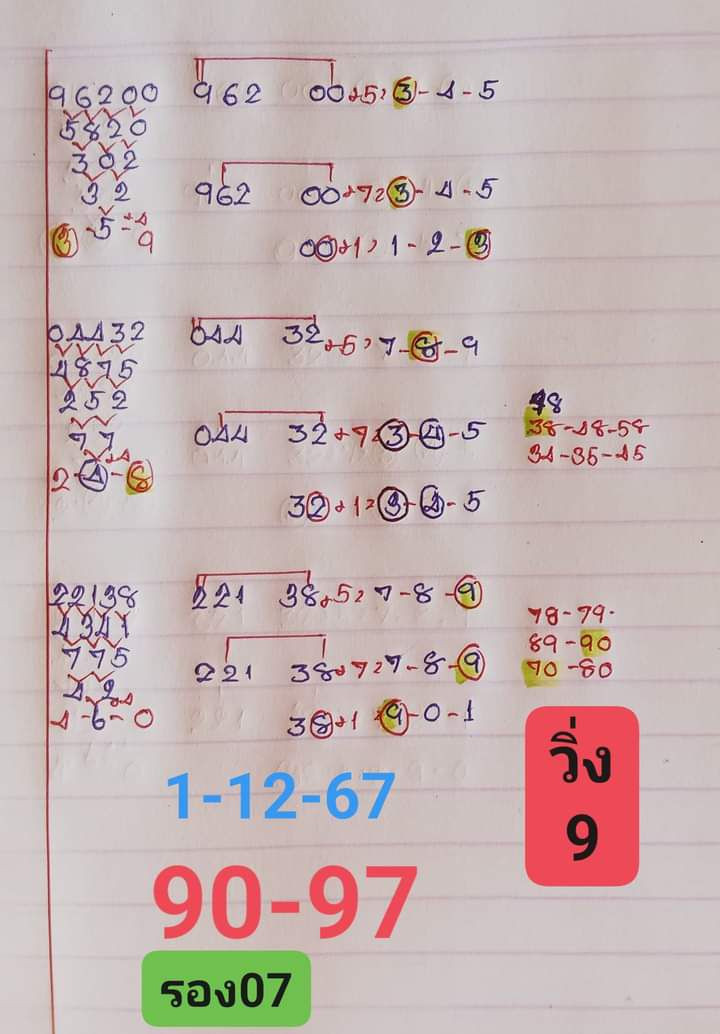 96200 962 00+5=3-4-5
5820
302
32 962 00+7=3-4-5
3-5-9 +4
00+1=1-2-3
04432 044 32+5=7-8-9
4875
252
77 044 32+7=3-4-5
2-4-8 +4
32+1=3-4-5
48
38-48-58
34-35-45
22138 221 38+5=7-8-9
4341
775
42 221 38+7=7-8-9
4-6-0 +4
38+1=9-0-1
78-79.
89-90
70-80
วิ่ง
9
1-12-67
90-97
รอง07